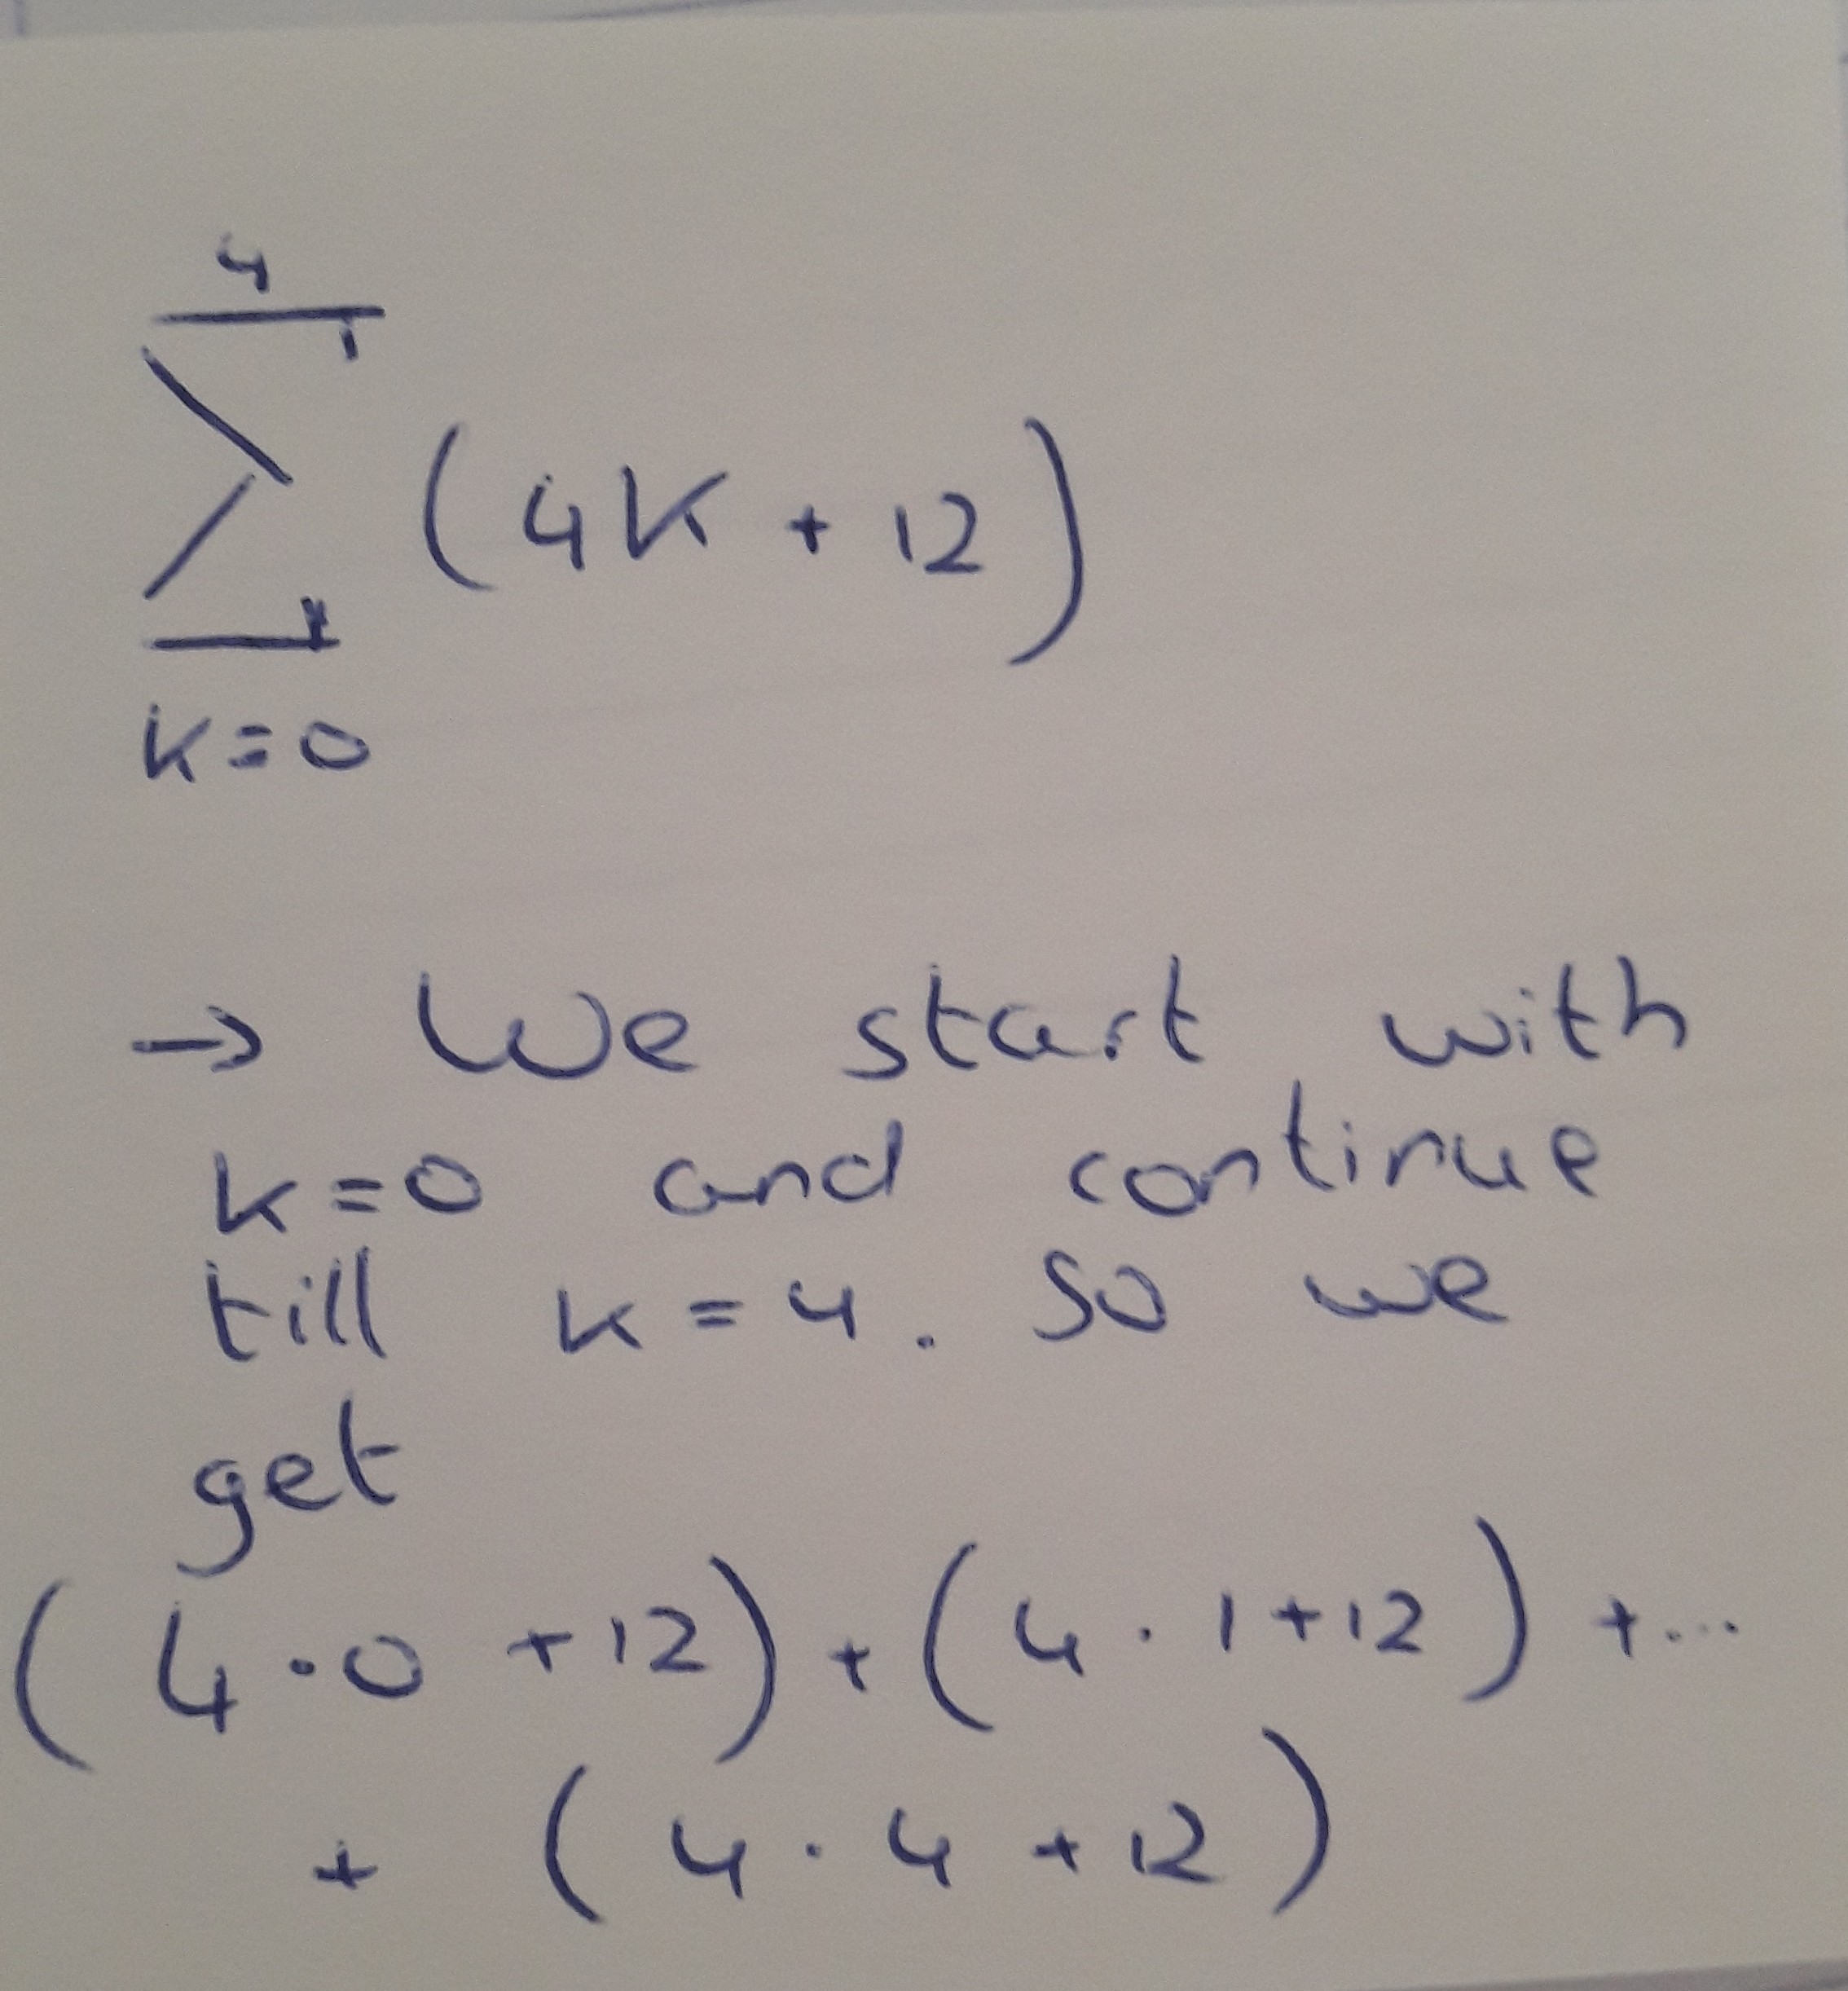 4
∑ (4K + 12)
K=0
→ We start with
K=0 and continue
till K = 4. So we
get
(4·0 +12) + (4·1+12) +...
+ (4·4 +12)